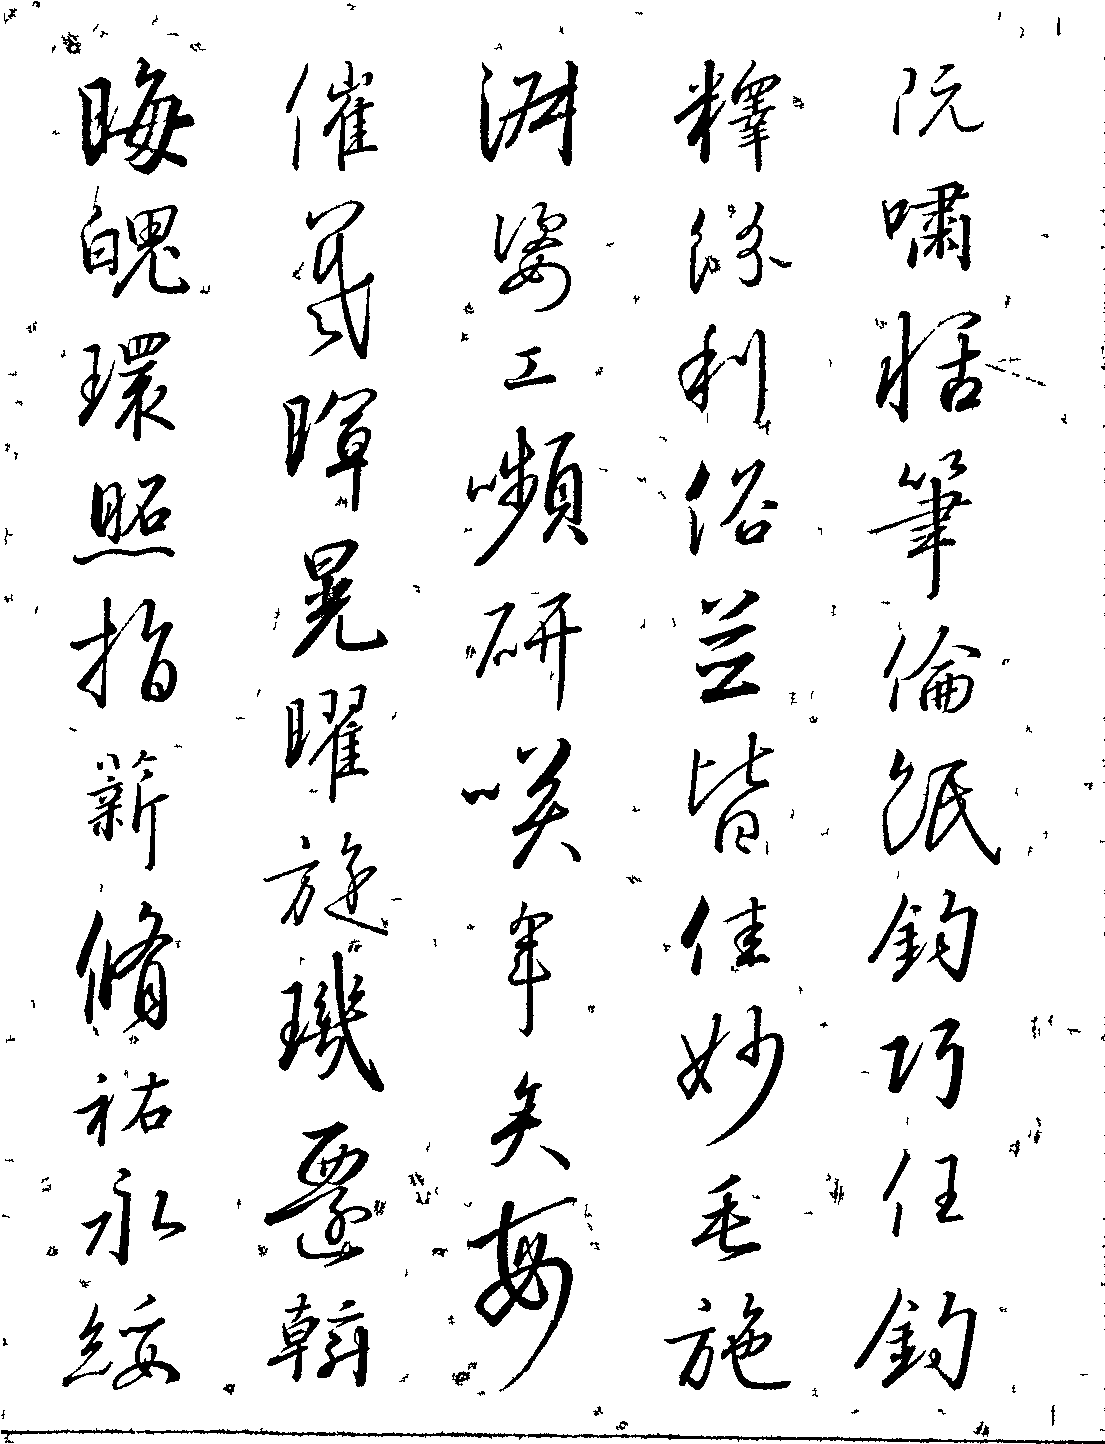 阮嘯恬筆倫紙鈞巧任釣
釋紛利俗並皆佳妙毛施
淑姿工嚬研咲年矢每
催羲暉晃曜旋璣遷斡
晦魄環照指薪脩祐永綏